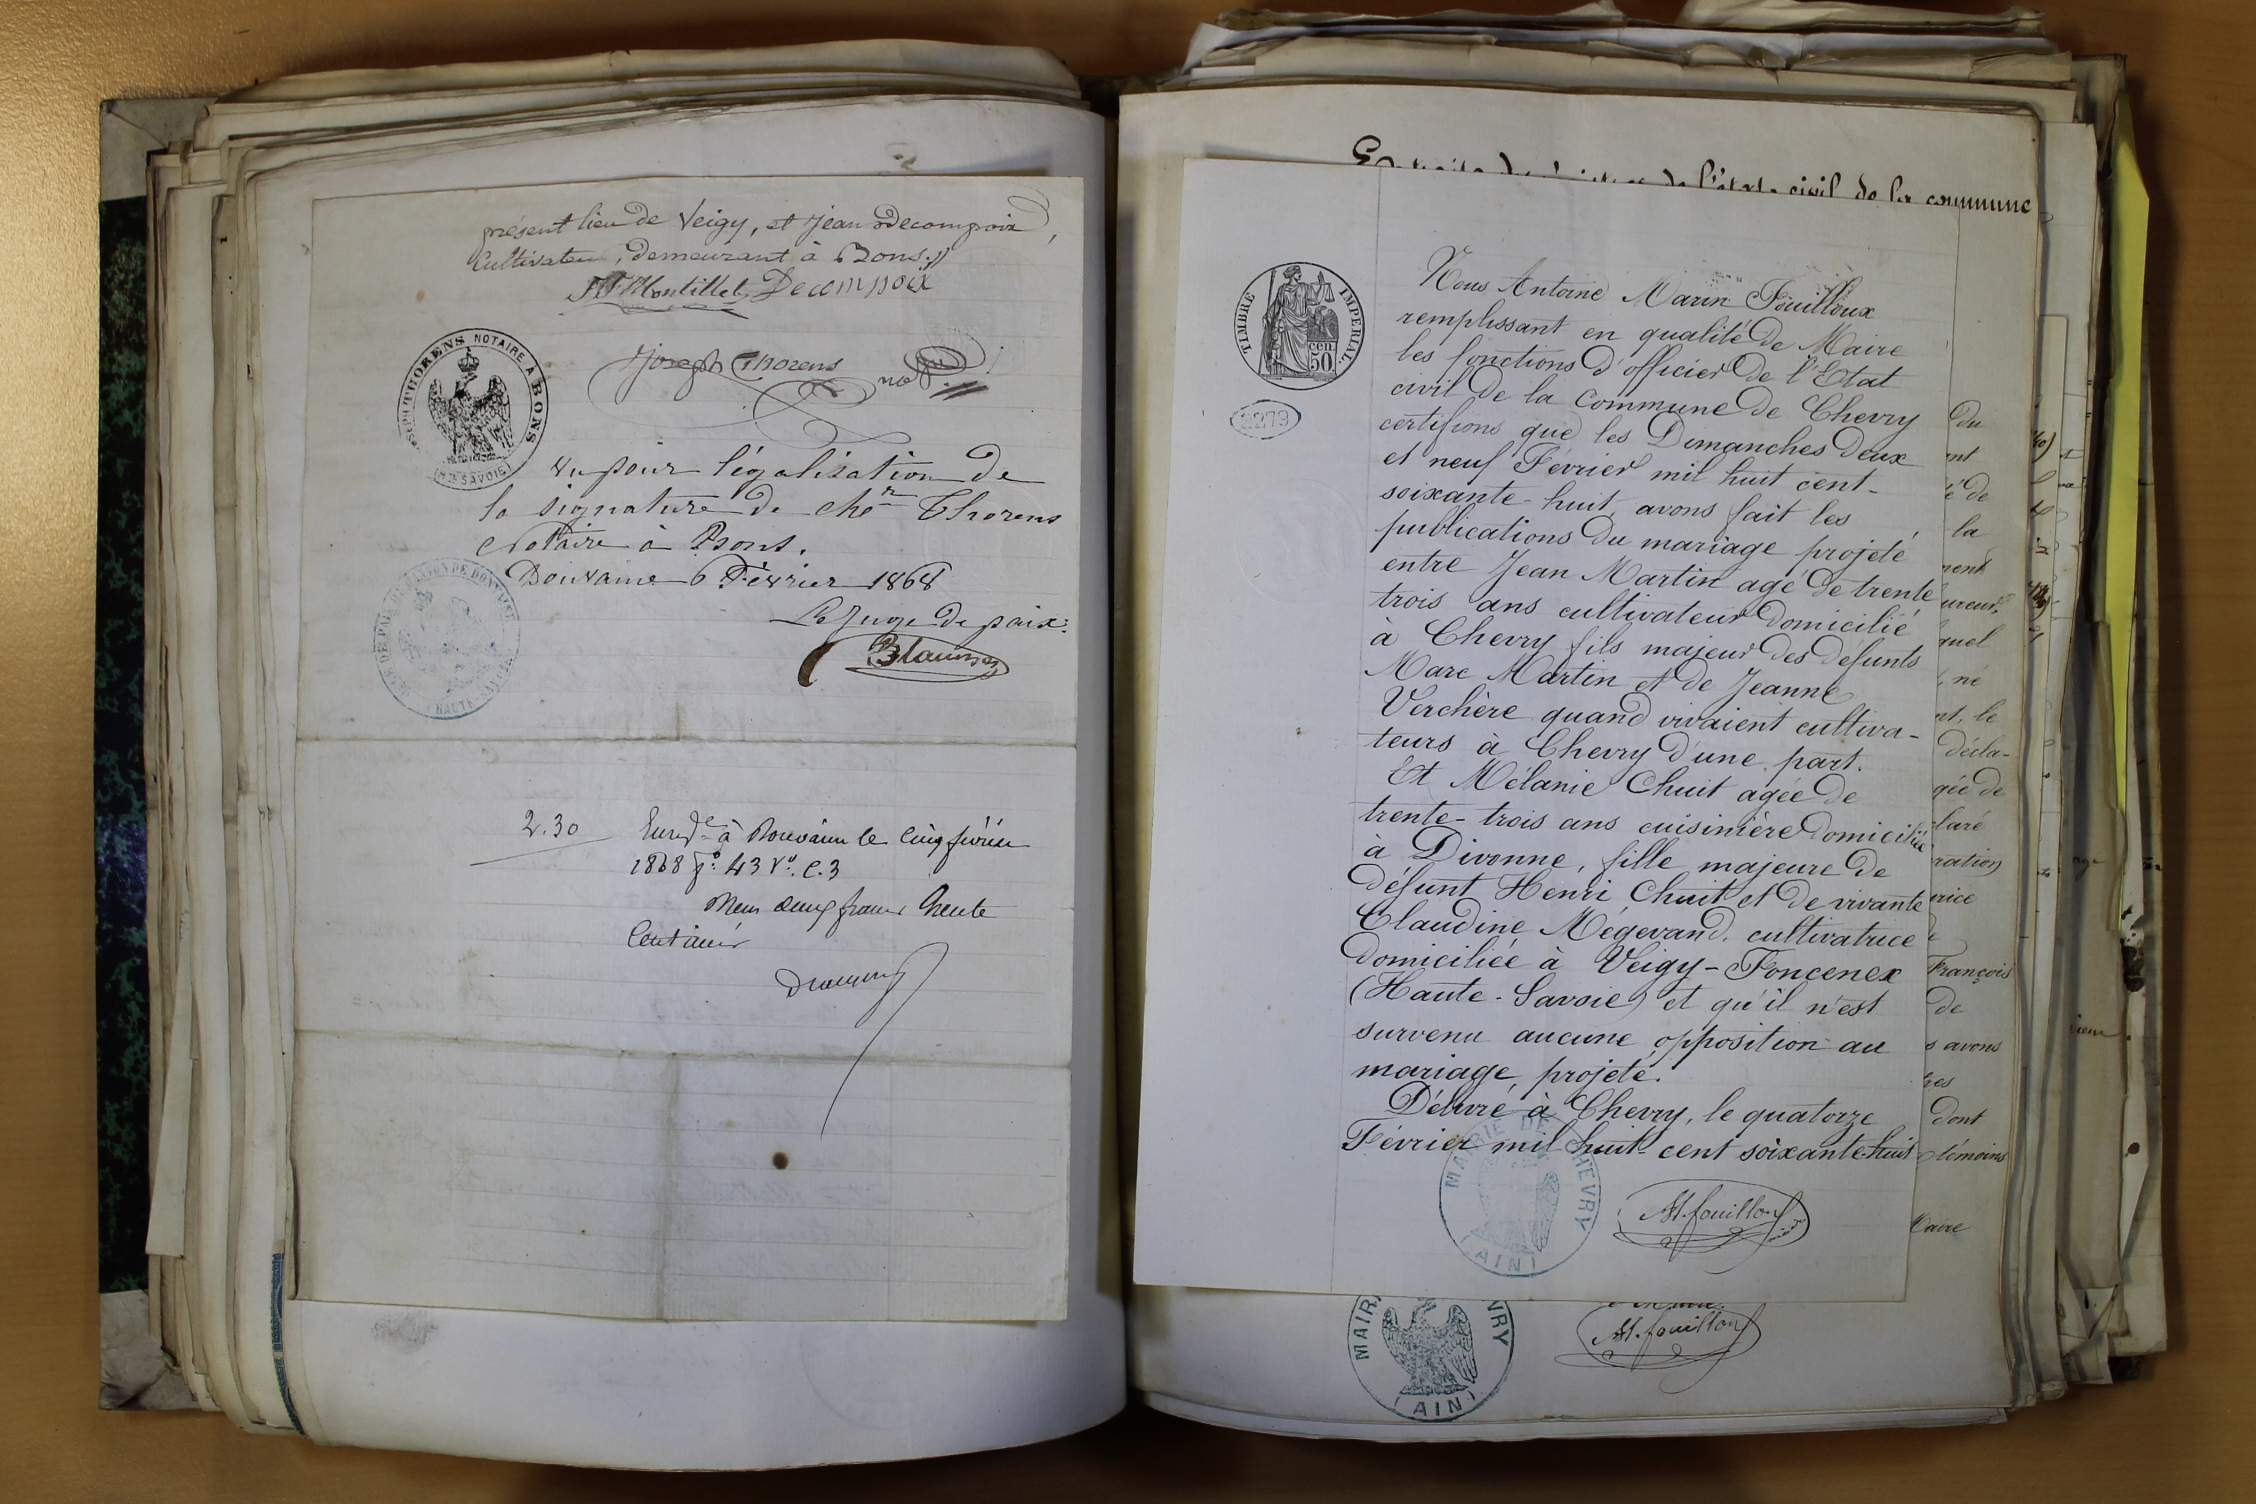 présent lieu de Veigy, et Jean Decompoix,
Cultivateur, demeurant à Bons.
Montillet Decompoix
Joseph Thorens nore
JOSEPH THORENS NOTAIRE A BONS
(HTE SAVOIE)
Vu pour légalisation de
la signature de Thorens
Notaire à Bons.
Douvaine 6 Février 1868
Le Juge de paix
HAUTE
2.30
Enregé à Douvaine le Cinq février
1868 fo. 43 Vo. C. 3
deux francs trente
Centimes
de l'état civil de la commune
TIMBRE IMPERIAL
cen
50
2279
Nous Antoine Marin Fouilloux
remplissant en qualité de Maire
les fonctions d'officier de l'Etat
civil de la commune de Chevry
certifions que les Dimanches deux
et neuf Février mil huit cent-
soixante-huit, avons fait les
publications du mariage projeté
entre Jean Martin agé de trente
trois ans cultivateur domicilié
à Chevry fils majeur des défunts
Marc Martin et de Jeanne
Verchère quand vivaient cultiva-
teurs à Chevry d'une part.
Et Mélanie Chuit agée de
trente-trois ans cuisinière domiciliée
à Divonne, fille majeure de
défunt Henri Chuit et de vivante
Claudine Mégevand, cultivatrice
domiciliée à Veigy-Foncenex
(Haute-Savoie) et qu'il n'est
survenu aucune opposition au
mariage projeté.
Délivré à Chevry, le quatorze
Février mil huit-cent soixante-huit
MAIRIE DE CHEVRY
(AIN)
At. fouilloux
du
de
la
né
le
décla-
François
de
avons
dont
témoins
MAIR VRY
(AIN)
At. fouilloux